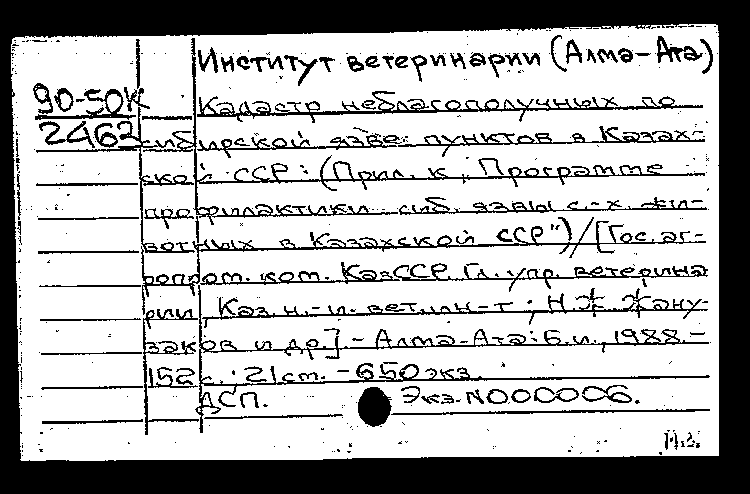 Институт ветеринарии (Алма-Ата)
90-50К
2462
Кадастр неблагополучных по
сибирской язве пунктов в Казах-
ской ССР: (Прил. к „Программе
профилактики сиб. язвы с.-х. жи-
вотных в Казахской ССР")/[Гос. аг-
ропром. ком. КазССР. Гл. упр. ветерина
рии, Каз. н.-и. вет. ин-т; Н.Ж. Жану-
заков и др.].- Алма-Ата: Б.и., 1988.-
152 с.; 21 ст. - 650 экз.
ДСП. Экз. N000006.